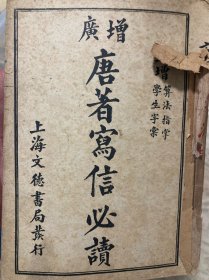 增廣
唐著寫信必讀
上海文德書局發行
增
算法指掌
學生字彙